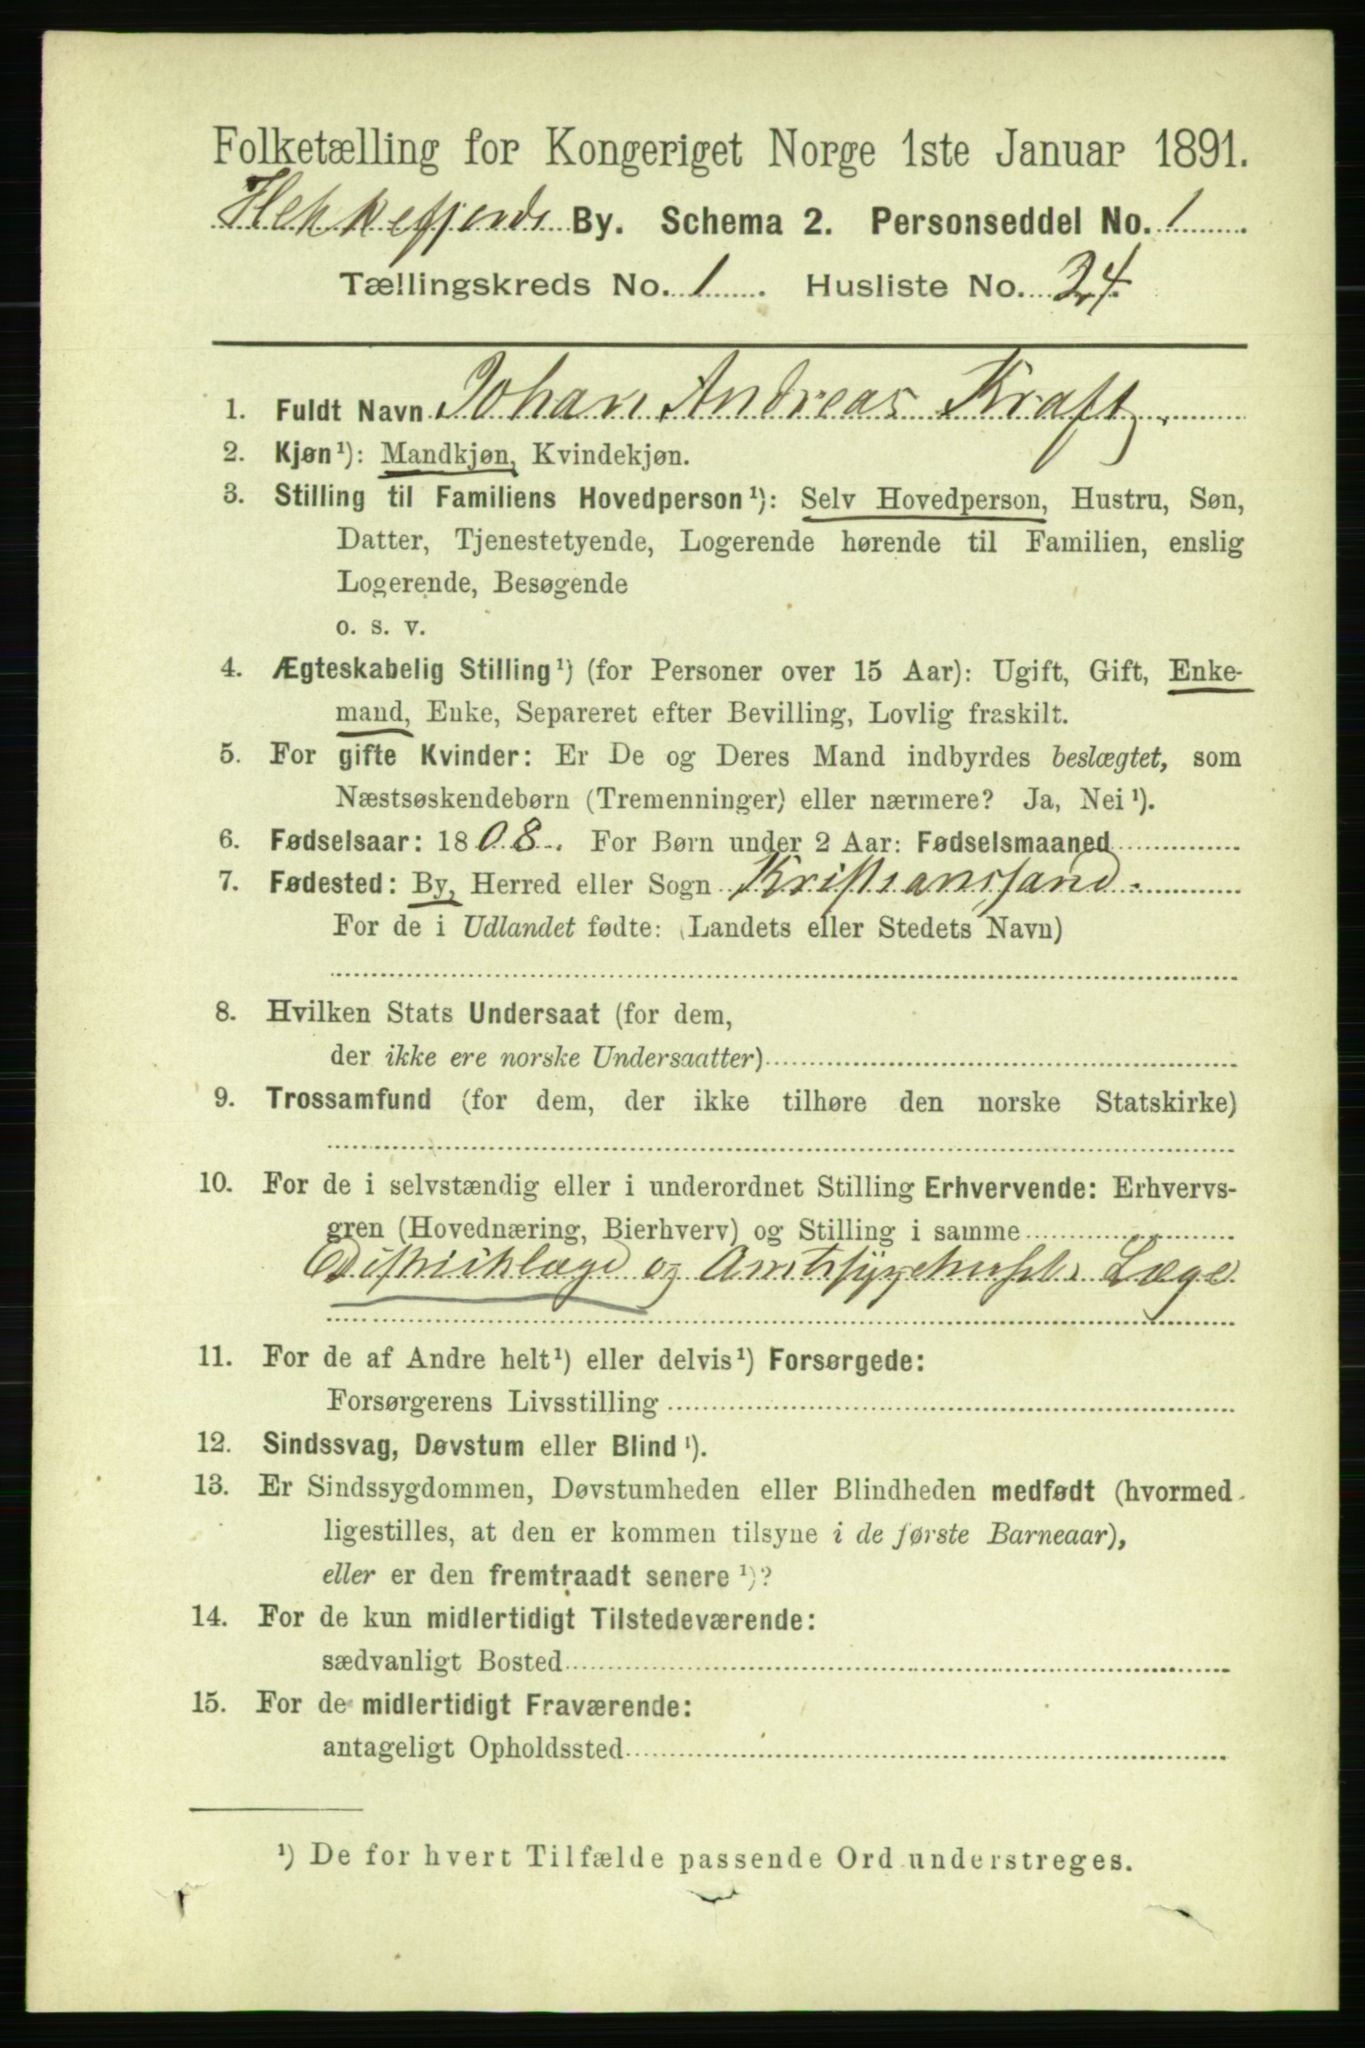 Folketælling for Kongeriget Norge 1ste Januar 1891.
Flekkefjords By. Schema 2. Personseddel No. 1
Tællingskreds No. 1. Husliste No. 24.
1. Fuldt Navn Johan Andreas Kraft,
2. Kjøn¹): Mandkjøn, Kvindekjøn.
3. Stilling til Familiens Hovedperson¹): Selv Hovedperson, Hustru, Søn,
Datter, Tjenestetyende, Logerende hørende til Familien, enslig
Logerende, Besøgende
o. s. v.
4. Ægteskabelig Stilling¹) (for Personer over 15 Aar): Ugift, Gift, Enke-
mand, Enke, Separeret efter Bevilling, Lovlig fraskilt.
5. For gifte Kvinder: Er De og Deres Mand indbyrdes beslægtet, som
Næstsøskendebørn (Tremenninger) eller nærmere? Ja, Nei¹).
6. Fødselsaar: 1808. For Børn under 2 Aar: Fødselsmaaned
7. Fødested: By, Herred eller Sogn Kristianssand.
For de i Udlandet fødte: (Landets eller Stedets Navn)
8. Hvilken Stats Undersaat (for dem,
der ikke ere norske Undersaatter)
9. Trossamfund (for dem, der ikke tilhøre den norske Statskirke)
10. For de i selvstændig eller i underordnet Stilling Erhvervende: Erhvervs-
gren (Hovednæring, Bierhverv) og Stilling i samme
Distriktslæge og Amtssygehusets Læge
11. For de af Andre helt¹) eller delvis¹) Forsørgede:
Forsørgerens Livsstilling
12. Sindssvag, Døvstum eller Blind¹).
13. Er Sindssygdommen, Døvstumheden eller Blindheden medfødt (hvormed
ligestilles, at den er kommen tilsyne i de første Barneaar),
eller er den fremtraadt senere¹)?
14. For de kun midlertidigt Tilstedeværende:
sædvanligt Bosted
15. For de midlertidigt Fraværende:
antageligt Opholdssted
¹) De for hvert Tilfælde passende Ord understreges.